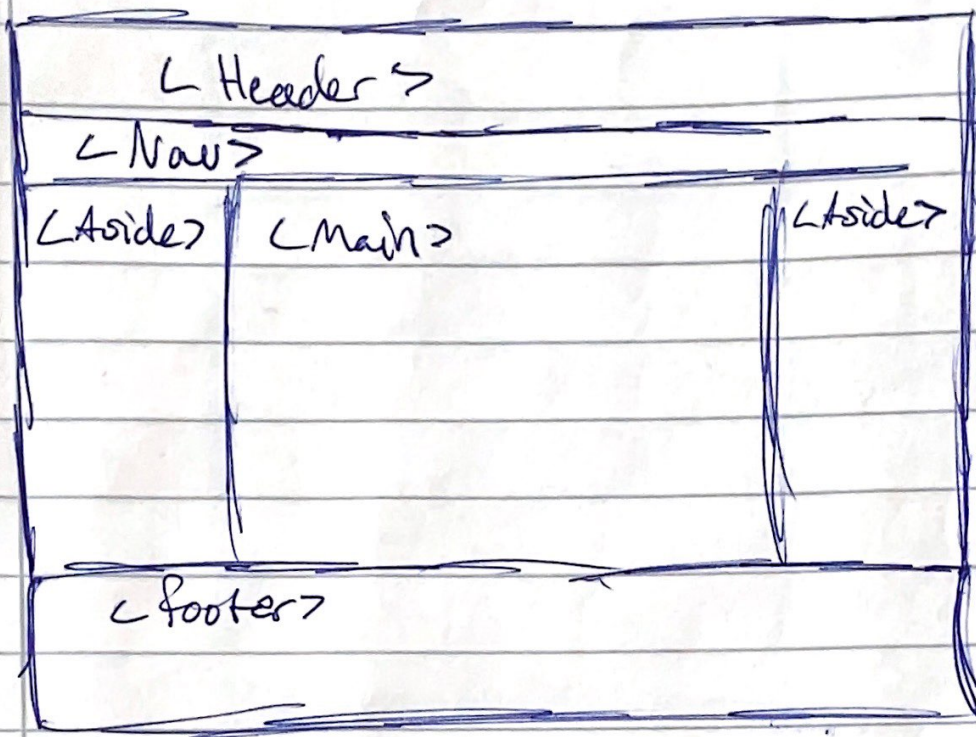 <Header>
<Nav>
<Aside> <Main> <Aside>
<footer>